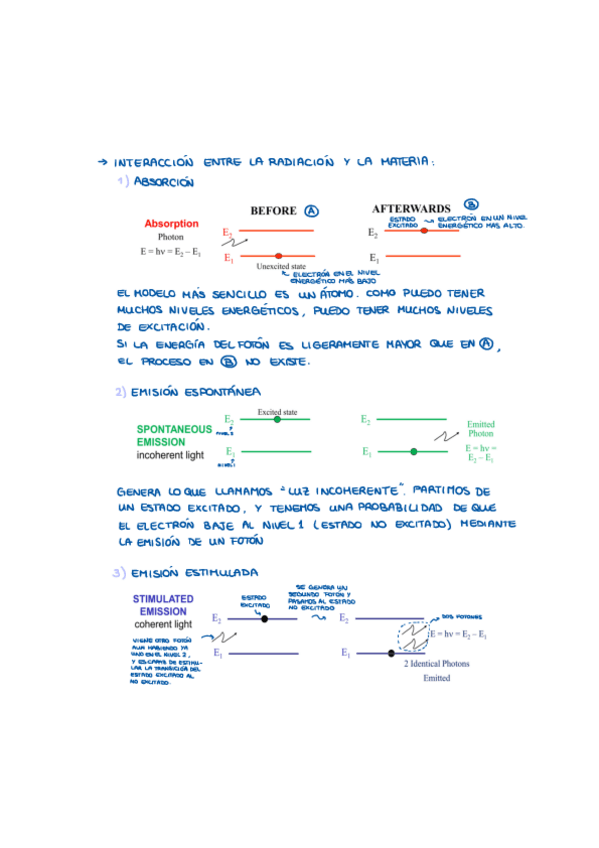 → INTERACCIÓN ENTRE LA RADIACIÓN Y LA MATERIA:
1) ABSORCIÓN
BEFORE A
AFTERWARDS B
Absorption
Photon
E = hν = E2 – E1
E2
E1
Unexcited state
ELECTRÓN EN EL NIVEL
ENERGÉTICO MÁS BAJO
ESTADO
EXCITADO
ELECTRÓN EN UN NIVEL
ENERGÉTICO MAS ALTO.
E2
E1
EL MODELO MÁS SENCILLO ES UN ÁTOMO. COMO PUEDO TENER
MUCHOS NIVELES ENERGÉTICOS, PUEDO TENER MUCHOS NIVELES
DE EXCITACIÓN.
SI LA ENERGÍA DEL FOTÓN ES LIGERAMENTE MAYOR QUE EN A,
EL PROCESO EN B NO EXISTE.
2) EMISIÓN ESPONTÁNEA
SPONTANEOUS
EMISSION
incoherent light
E2
NIVEL 2
Excited state
E1
NIVEL 1
E2
E1
Emitted
Photon
E = hν =
E2 – E1
GENERA LO QUE LLAMAMOS "LUZ INCOHERENTE". PARTIMOS DE
UN ESTADO EXCITADO, Y TENEMOS UNA PROBABILIDAD DE QUE
EL ELECTRÓN BAJE AL NIVEL 1 (ESTADO NO EXCITADO) MEDIANTE
LA EMISIÓN DE UN FOTÓN
3) EMISIÓN ESTIMULADA
STIMULATED
EMISSION
coherent light
VIENE OTRO FOTÓN
AUN HABIENDO YA
UNO EN EL NIVEL 2,
Y ES CAPAZ DE ESTIMU-
LAR LA TRANSICIÓN DEL
ESTADO EXCITADO AL
NO EXCITADO.
ESTADO
EXCITADO
E2
E1
SE GENERA UN
SEGUNDO FOTÓN Y
PASAMOS AL ESTADO
NO EXCITADO
E2
E1
DOS FOTONES
E = hν = E2 – E1
2 Identical Photons
Emitted